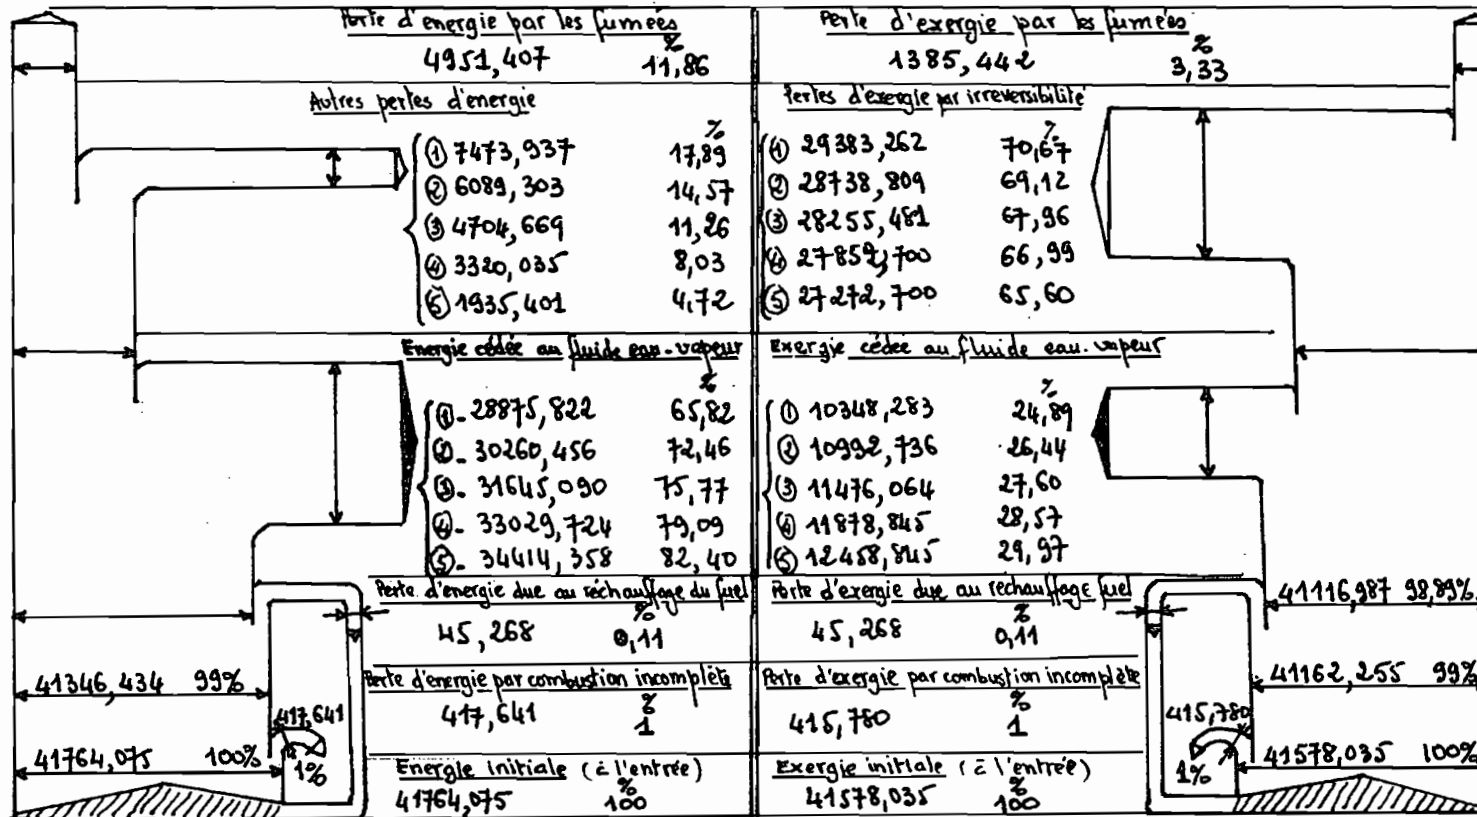 Perte d'énergie par les fumées
%
4951,407 11,86
Autres pertes d'énergie
%
① 7473,937 17,89
② 6089,303 14,57
③ 4704,669 11,26
④ 3320,035 8,03
⑤ 1935,401 4,72
Energie cédée au fluide eau-vapeur
%
①- 28875,822 65,82
②- 30260,456 72,46
③- 31645,090 75,77
④- 33029,724 79,09
⑤- 34414,358 82,40
Perte d'énergie due au réchauffage du fuel
%
45,268 0,11
Perte d'énergie par combustion incomplète
%
417,641 1
Energie initiale (à l'entrée)
%
41764,075 100
41346,434 99%
417,641
41764,075 100%
1%
Perte d'exergie par les fumées
%
1385,442 3,33
Pertes d'exergie par irreversibilité
%
① 29383,262 70,67
② 28738,809 69,12
③ 28255,481 67,96
④ 27852,700 66,99
⑤ 27272,700 65,60
Exergie cédée au fluide eau-vapeur
%
① 10348,283 24,89
② 10992,736 26,44
③ 11476,064 27,60
④ 11878,845 28,57
⑤ 12458,845 29,97
Perte d'exergie due au rechauffage fuel
%
45,268 0,11
Perte d'exergie par combustion incomplète
%
415,780 1
Exergie initiale (à l'entrée)
%
41578,035 100
41116,987 98,89%
41162,255 99%
415,780
41578,035 100%
1%